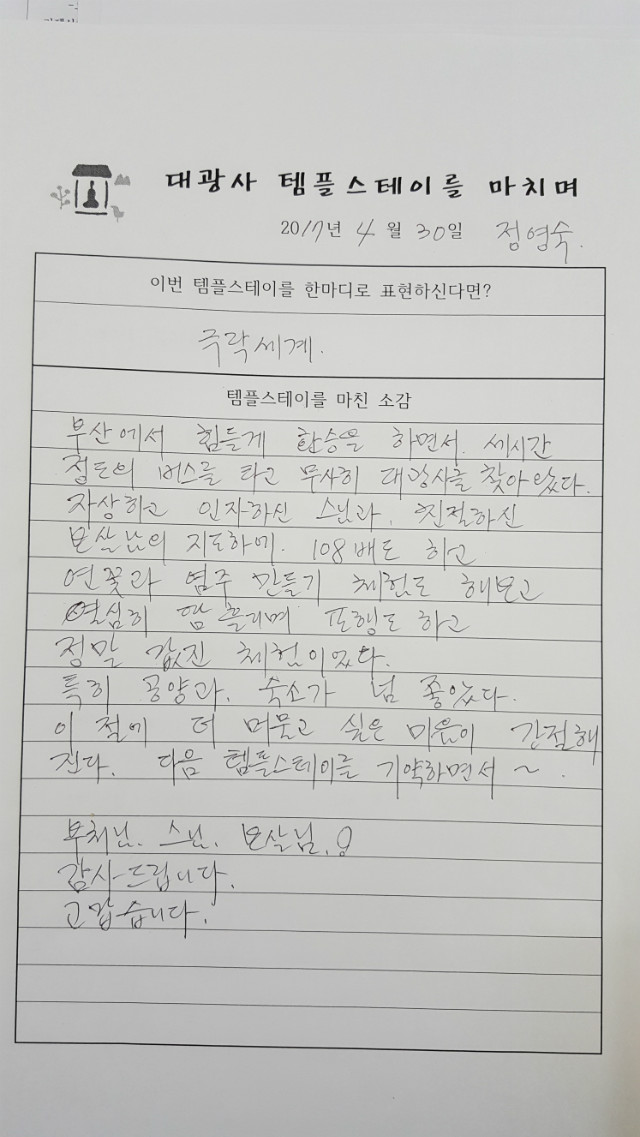 대광사 템플스테이를 마치며
2017년 4월 30일 정영숙.
이번 템플스테이를 한마디로 표현하신다면?
극락세계.
템플스테이를 마친 소감
부산에서 힘들게 환승을 하면서. 세시간
정도의 버스를 타고 무사히 대광사를 찾아왔다.
자상하고 인자하신 스님과, 친절하신
보살님의 지도하에. 108배도 하고
연꽃과 염주 만들기 체험도 해보고
열심히 땀 흘리며 포행도 하고
정말 값진 체험이었다.
특히 공양과, 숙소가 넘 좋았다.
이 절에 더 머물고 싶은 마음이 간절해
진다. 다음 템플스테이를 기약하면서 ~.
부처님. 스님. 보살님.
감사드립니다.
고맙습니다.